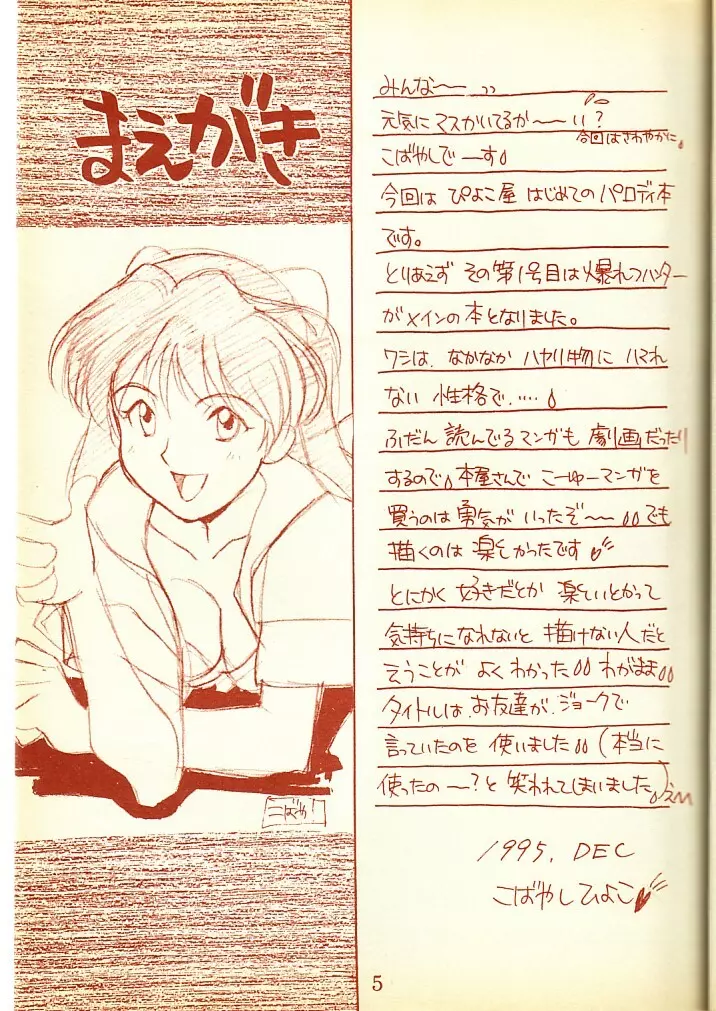 まえがき
みんな〜〜 〃
元気に マスかいてるか〜〜い?
今回はさわやかに
こばやしで ーす
今回は ぴよこ屋 はじめての パロディ本
です。
とりあえず その第1号目は 爆れつハンター
がメインの 本となりました。
ワシは、なかなか ハヤリ物に ハマれ
ない 性格で‥‥
ふだん 読んでるマンガも 劇画だったり
するので 本屋さんで こーゆーマンガを
買うのは 勇気が いったぞ〜〜 でも
描くのは 楽しかったです
とにかく 好きだとか 楽しいとかって
気持ちに なれないと 描けない人だと
そうことが よくわかった わがまま
タイトルは、お友達が、ジョークで
言っていたのを 使いました (本当に
使ったの〜?と 笑われてしまいました)
1995. DEC
こばやしひよこ
こばやし
5